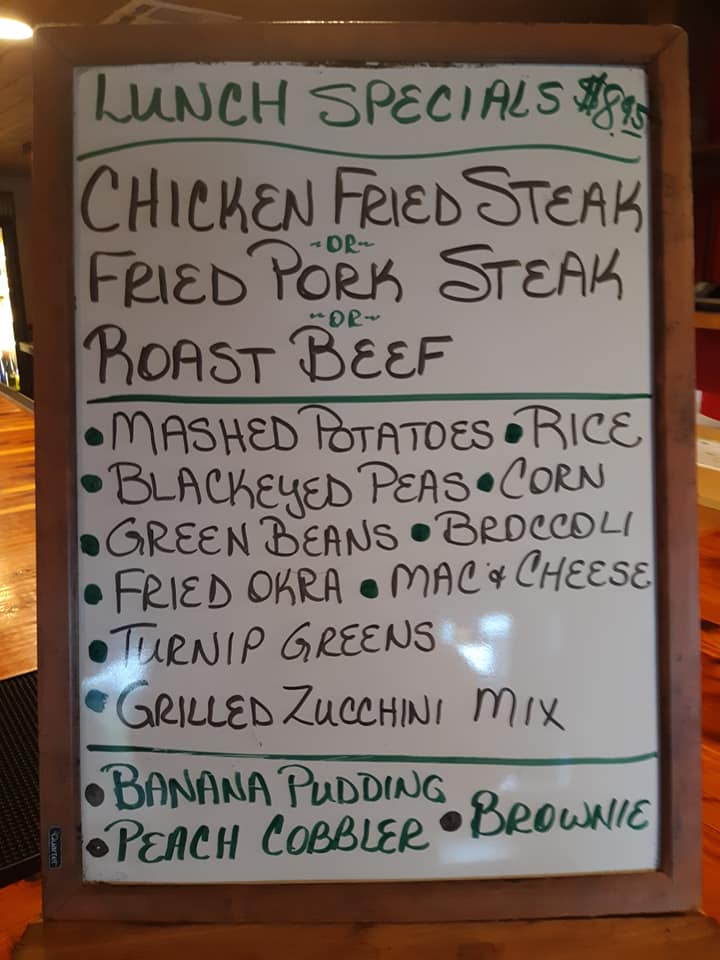 LUNCH SPECIALS $8.95
CHICKEN FRIED STEAK
~OR~
FRIED PORK STEAK
~OR~
ROAST BEEF
• MASHED POTATOES • RICE
• BLACKEYED PEAS • CORN
• GREEN BEANS • BROCCOLI
• FRIED OKRA • MAC & CHEESE
• TURNIP GREENS
• GRILLED ZUCCHINI MIX
• BANANA PUDDING
• PEACH COBBLER • BROWNIE
Quartet